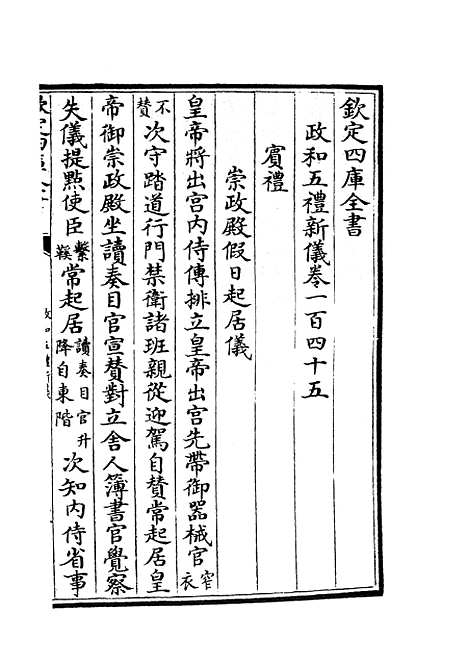 欽定四庫全書
政和五禮新儀卷一百四十五
賓禮
崇政殿假日起居儀
皇帝將出宫内侍傳排立皇帝出宫先帶御器械官窄衣
不贊次守踏道行門禁衛諸班親從迎駕自贊常起居皇
帝御崇政殿坐讀奏目官宣贊對立舍人簿書官覺察
失儀提點使臣繫鞵常起居讀奏目官升降自東階次知内侍省事